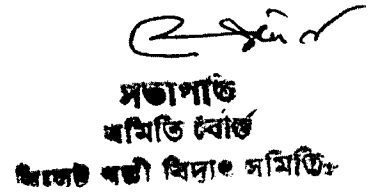 সভাপতি
সমিতি বোর্ড
সিলেট পল্লী বিদ্যুৎ সমিতি